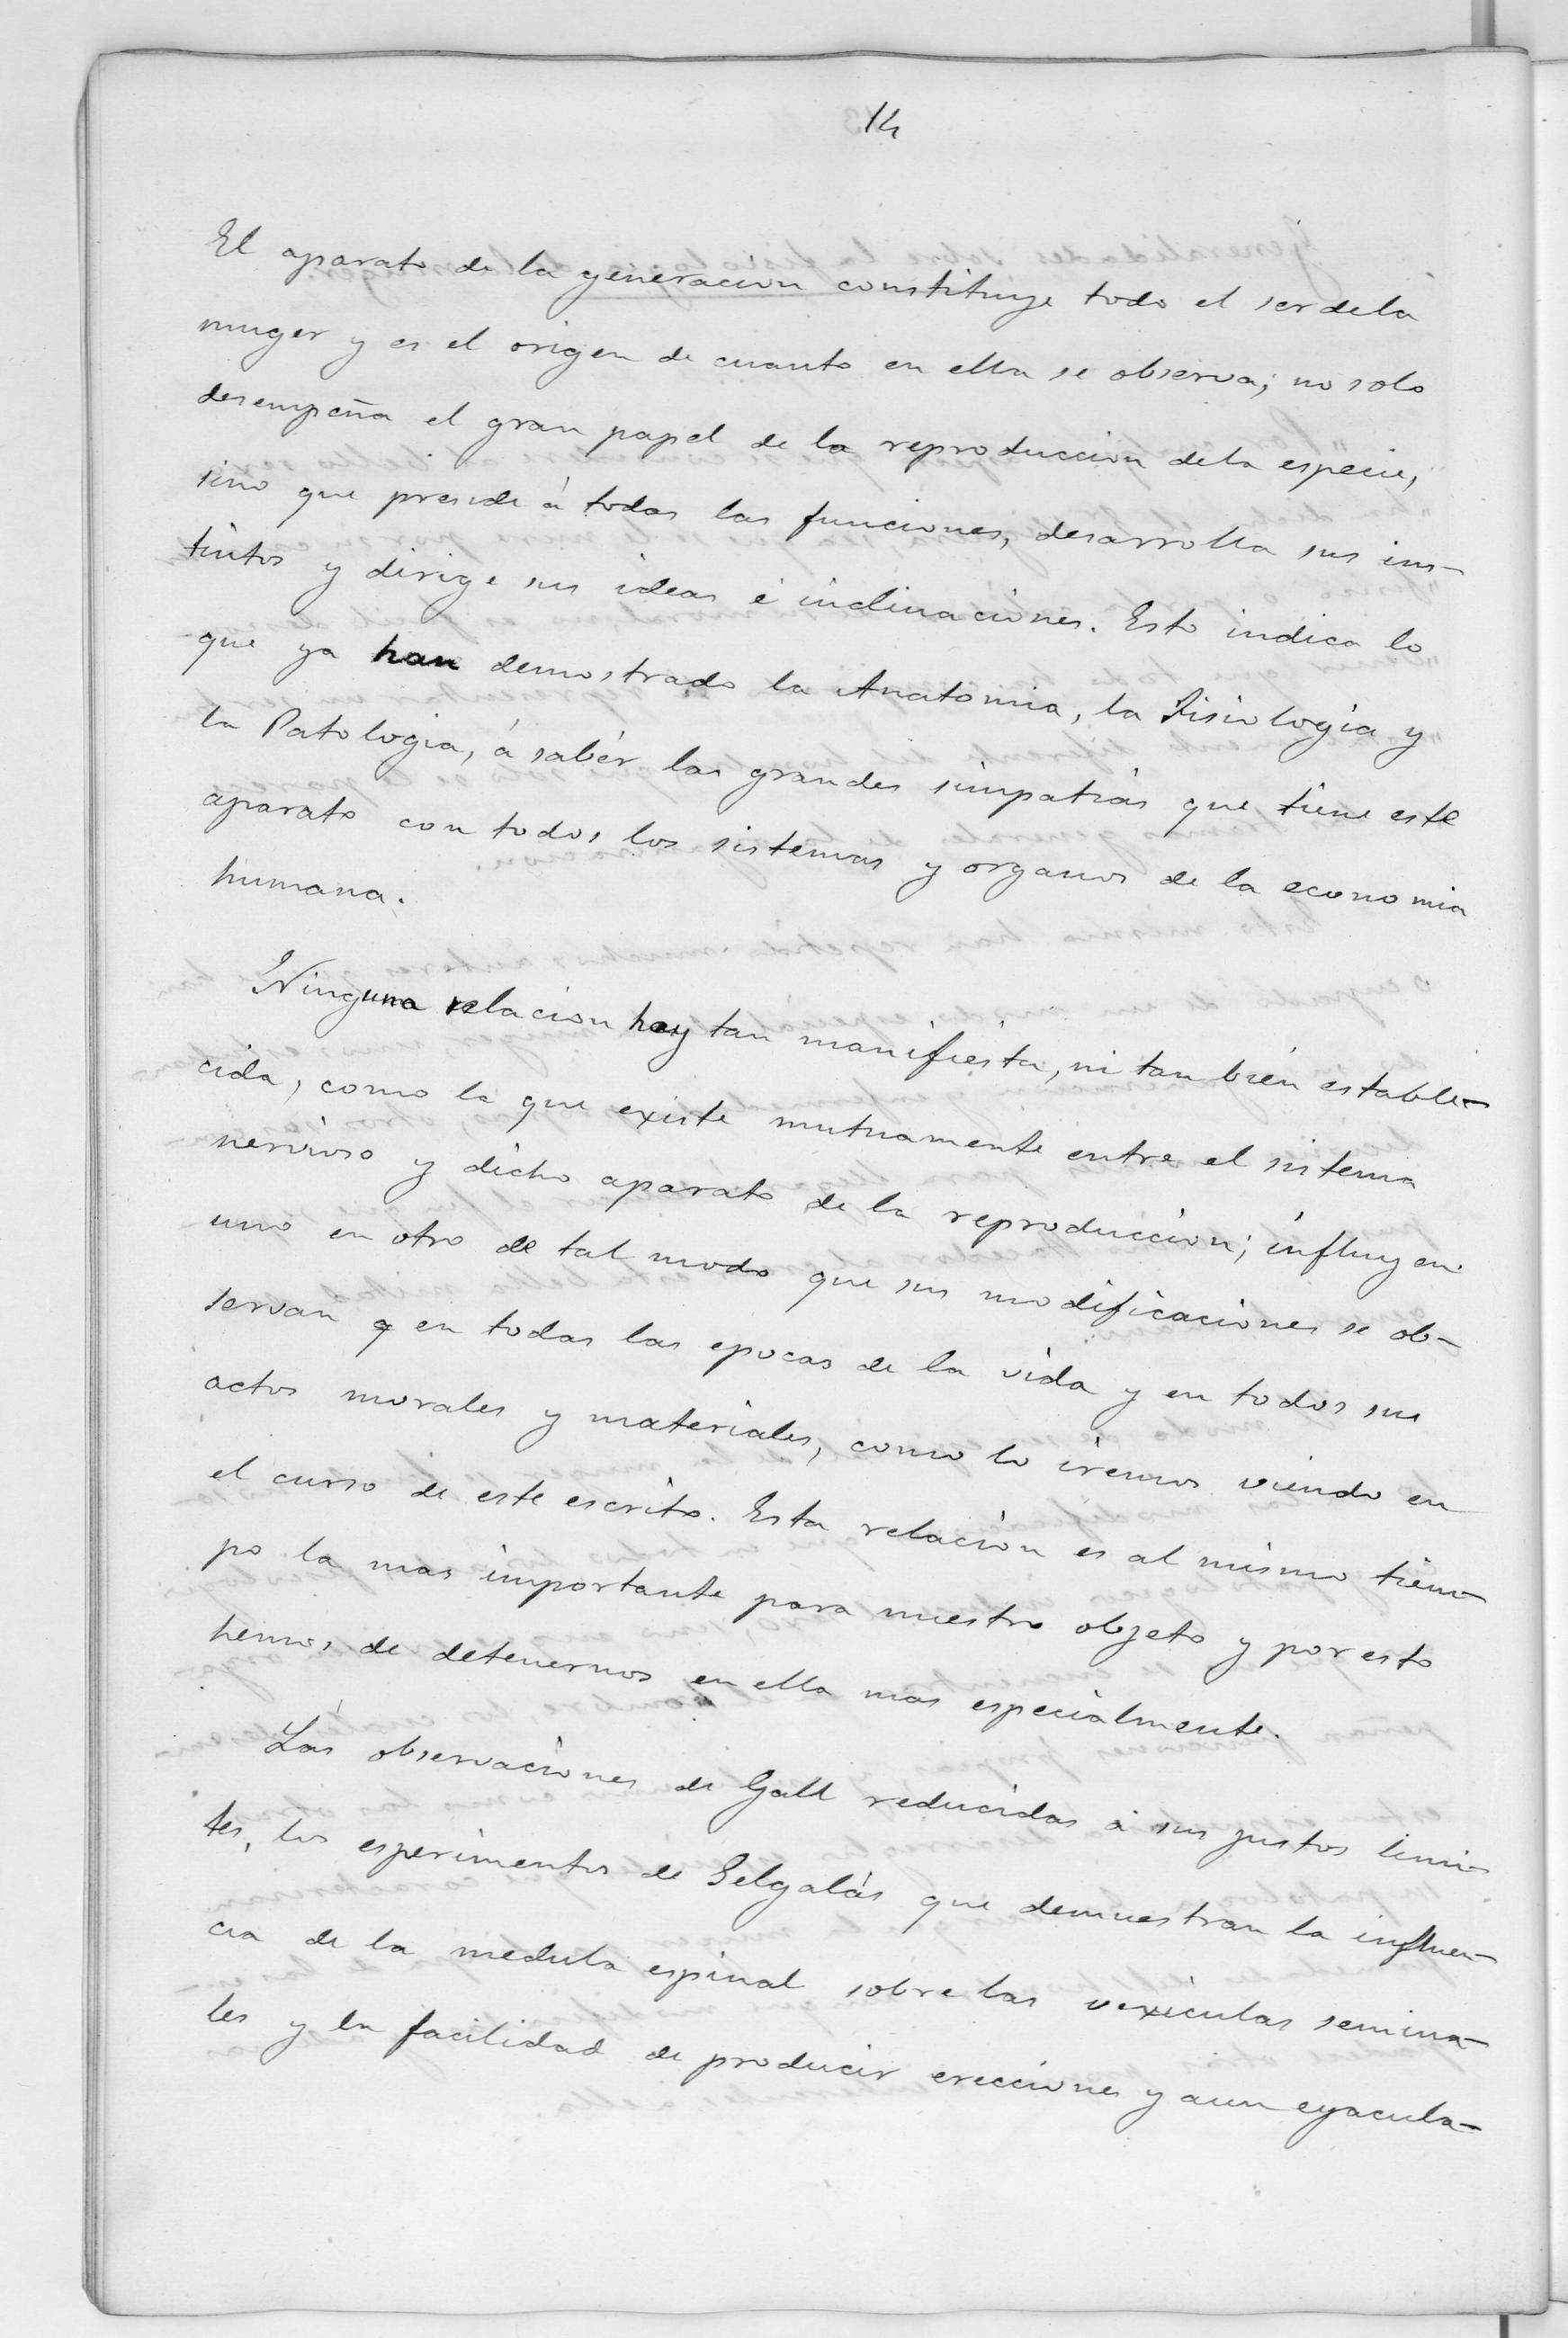 14
El aparato de la generacion constituye todo el ser dela
muger y es el origen de cuanto en ella se observa; no solo
desempeña el gran papel de la reproduccion dela especie,
sino que preside á todas las funciones, desarrolla sus ins-
tintos y dirige sus ideas é inclinaciones. Esto indica lo
que ya han demostrado la Anatomia, la Fisiologia y
la Patologia, á saber las grandes simpatias que tiene este
aparato con todos los sistemas y organos de la economia
humana.
Ninguna relacion hay tan manifiesta, ni tan bien estable-
cida, como la que existe mutuamente entre el sistema
nervioso y dicho aparato de la reproduccion; influyen
uno en otro de tal modo que sus modificaciones se ob-
servan en todas las epocas de la vida y en todos sus
actos morales y materiales, como lo iremos viendo en
el curso de este escrito. Esta relacion es al mismo tiem-
po la mas importante para nuestro objeto y por esto
hemos de detenernos en ella mas especialmente.
Las observaciones de Gall reducidas á sus justos limi-
tes, los esperimentos de Selgalás que demuestran la influen-
cia de la medula espinal sobre las vexiculas semina-
les y la facilidad de producir erecciones y aun eyacula-